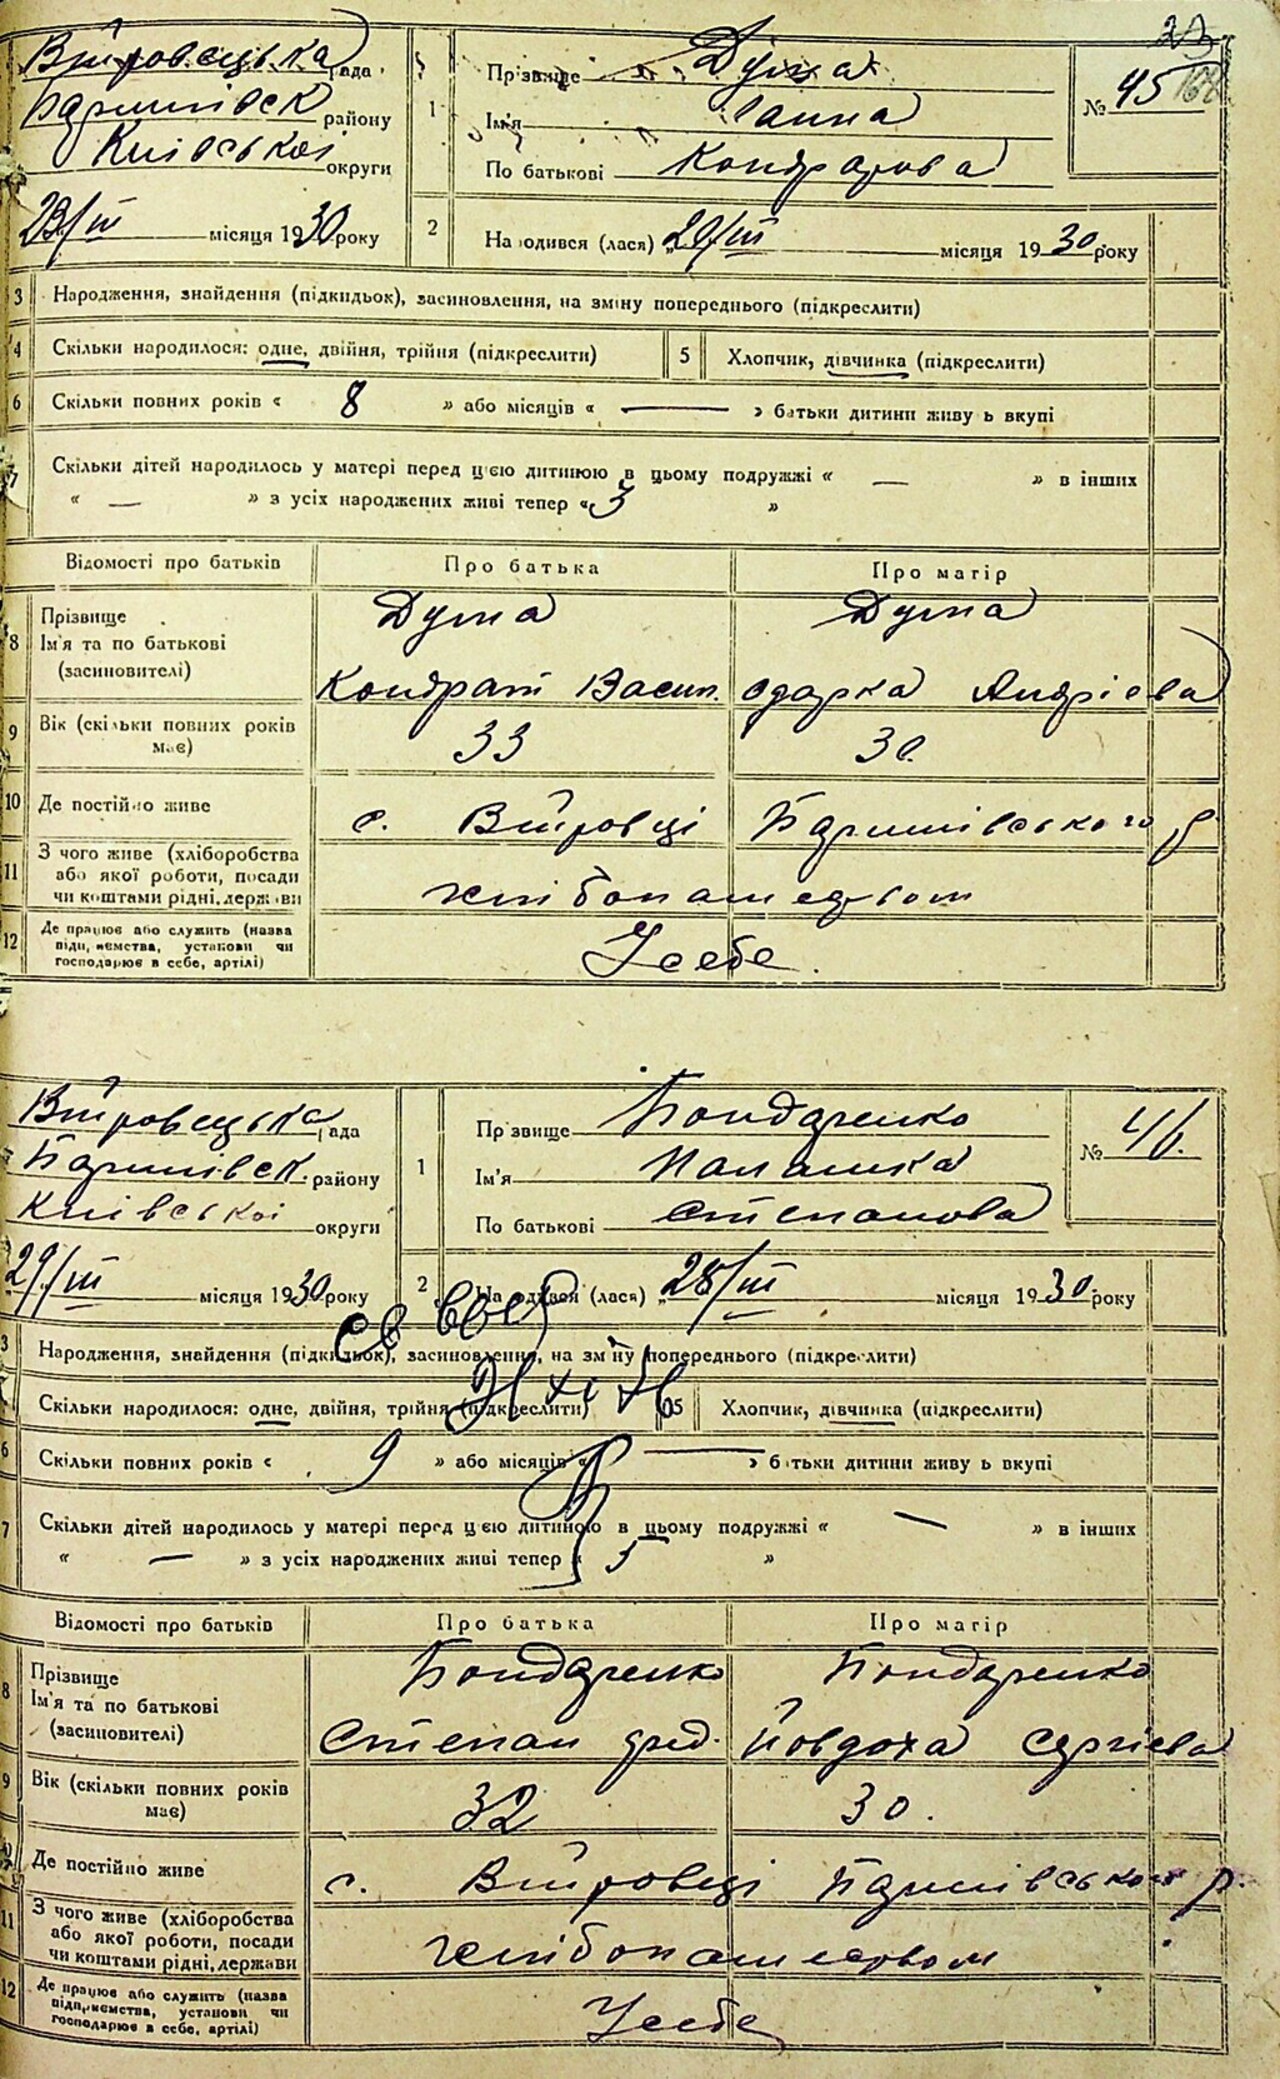 23
Війтровецька рада
Баришівськ району
Київської округи
23/III місяця 1930 року
1 Прізвище Дума
Ім'я Ганна
По батькові Кондратова
№ 45
2 Народився (лася) „20/III місяця 1930 року
3 Народження, знайдення (підкидьок), засиновлення, на зміну попереднього (підкреслити)
4 Скільки народилося: одне, двійня, трійня (підкреслити) 5 Хлопчик, дівчинка (підкреслити)
6 Скільки повних років « 8 » або місяців « — » батьки дитини живуть вкупі
7 Скільки дітей народилось у матері перед цією дитиною в цьому подружжі « — » в інших
« — » з усіх народжених живі тепер « 3 »
Відомості про батьків Про батька Про матір
8 Прізвище Дума Дума
Ім'я та по батькові
(засиновителі) Кондрат Васил. Одарка Андрієва
9 Вік (скільки повних років має) 33 30.
10 Де постійно живе с. Війтровці Баришівського р
11 З чого живе (хліборобства
або якої роботи, посади
чи коштами рідні, держави хлібопашедством
12 Де працює або служить (назва
підприємства, установи чи
господарює в себе, артілі) У себе.
Війтровецька рада
Баришівськ. району
Київської округи
29/III місяця 1930 року
1 Прізвище Бондаренко
Ім'я Палашка
По батькові Степанова
№ 46.
2 Народився (лася) „28/III місяця 1930 року
3 Народження, знайдення (підкидьок), засиновлення, на зміну попереднього (підкреслити)
4 Скільки народилося: одне, двійня, трійня (підкреслити) 5 Хлопчик, дівчинка (підкреслити)
6 Скільки повних років « 9 » або місяців « — » батьки дитини живуть вкупі
7 Скільки дітей народилось у матері перед цією дитиною в цьому подружжі « — » в інших
« — » з усіх народжених живі тепер « 5 »
Відомості про батьків Про батька Про матір
8 Прізвище Бондаренко Бондаренко
Ім'я та по батькові
(засиновителі) Степан Йовдоха Сергієва
9 Вік (скільки повних років має) 32 30.
Де постійно живе с. Війтровці Баришівського р.
11 З чого живе (хліборобства
або якої роботи, посади
чи коштами рідні, держави хлібопашеством
12 Де працює або служить (назва
підприємства, установи чи
господарює в себе, артілі) У себе